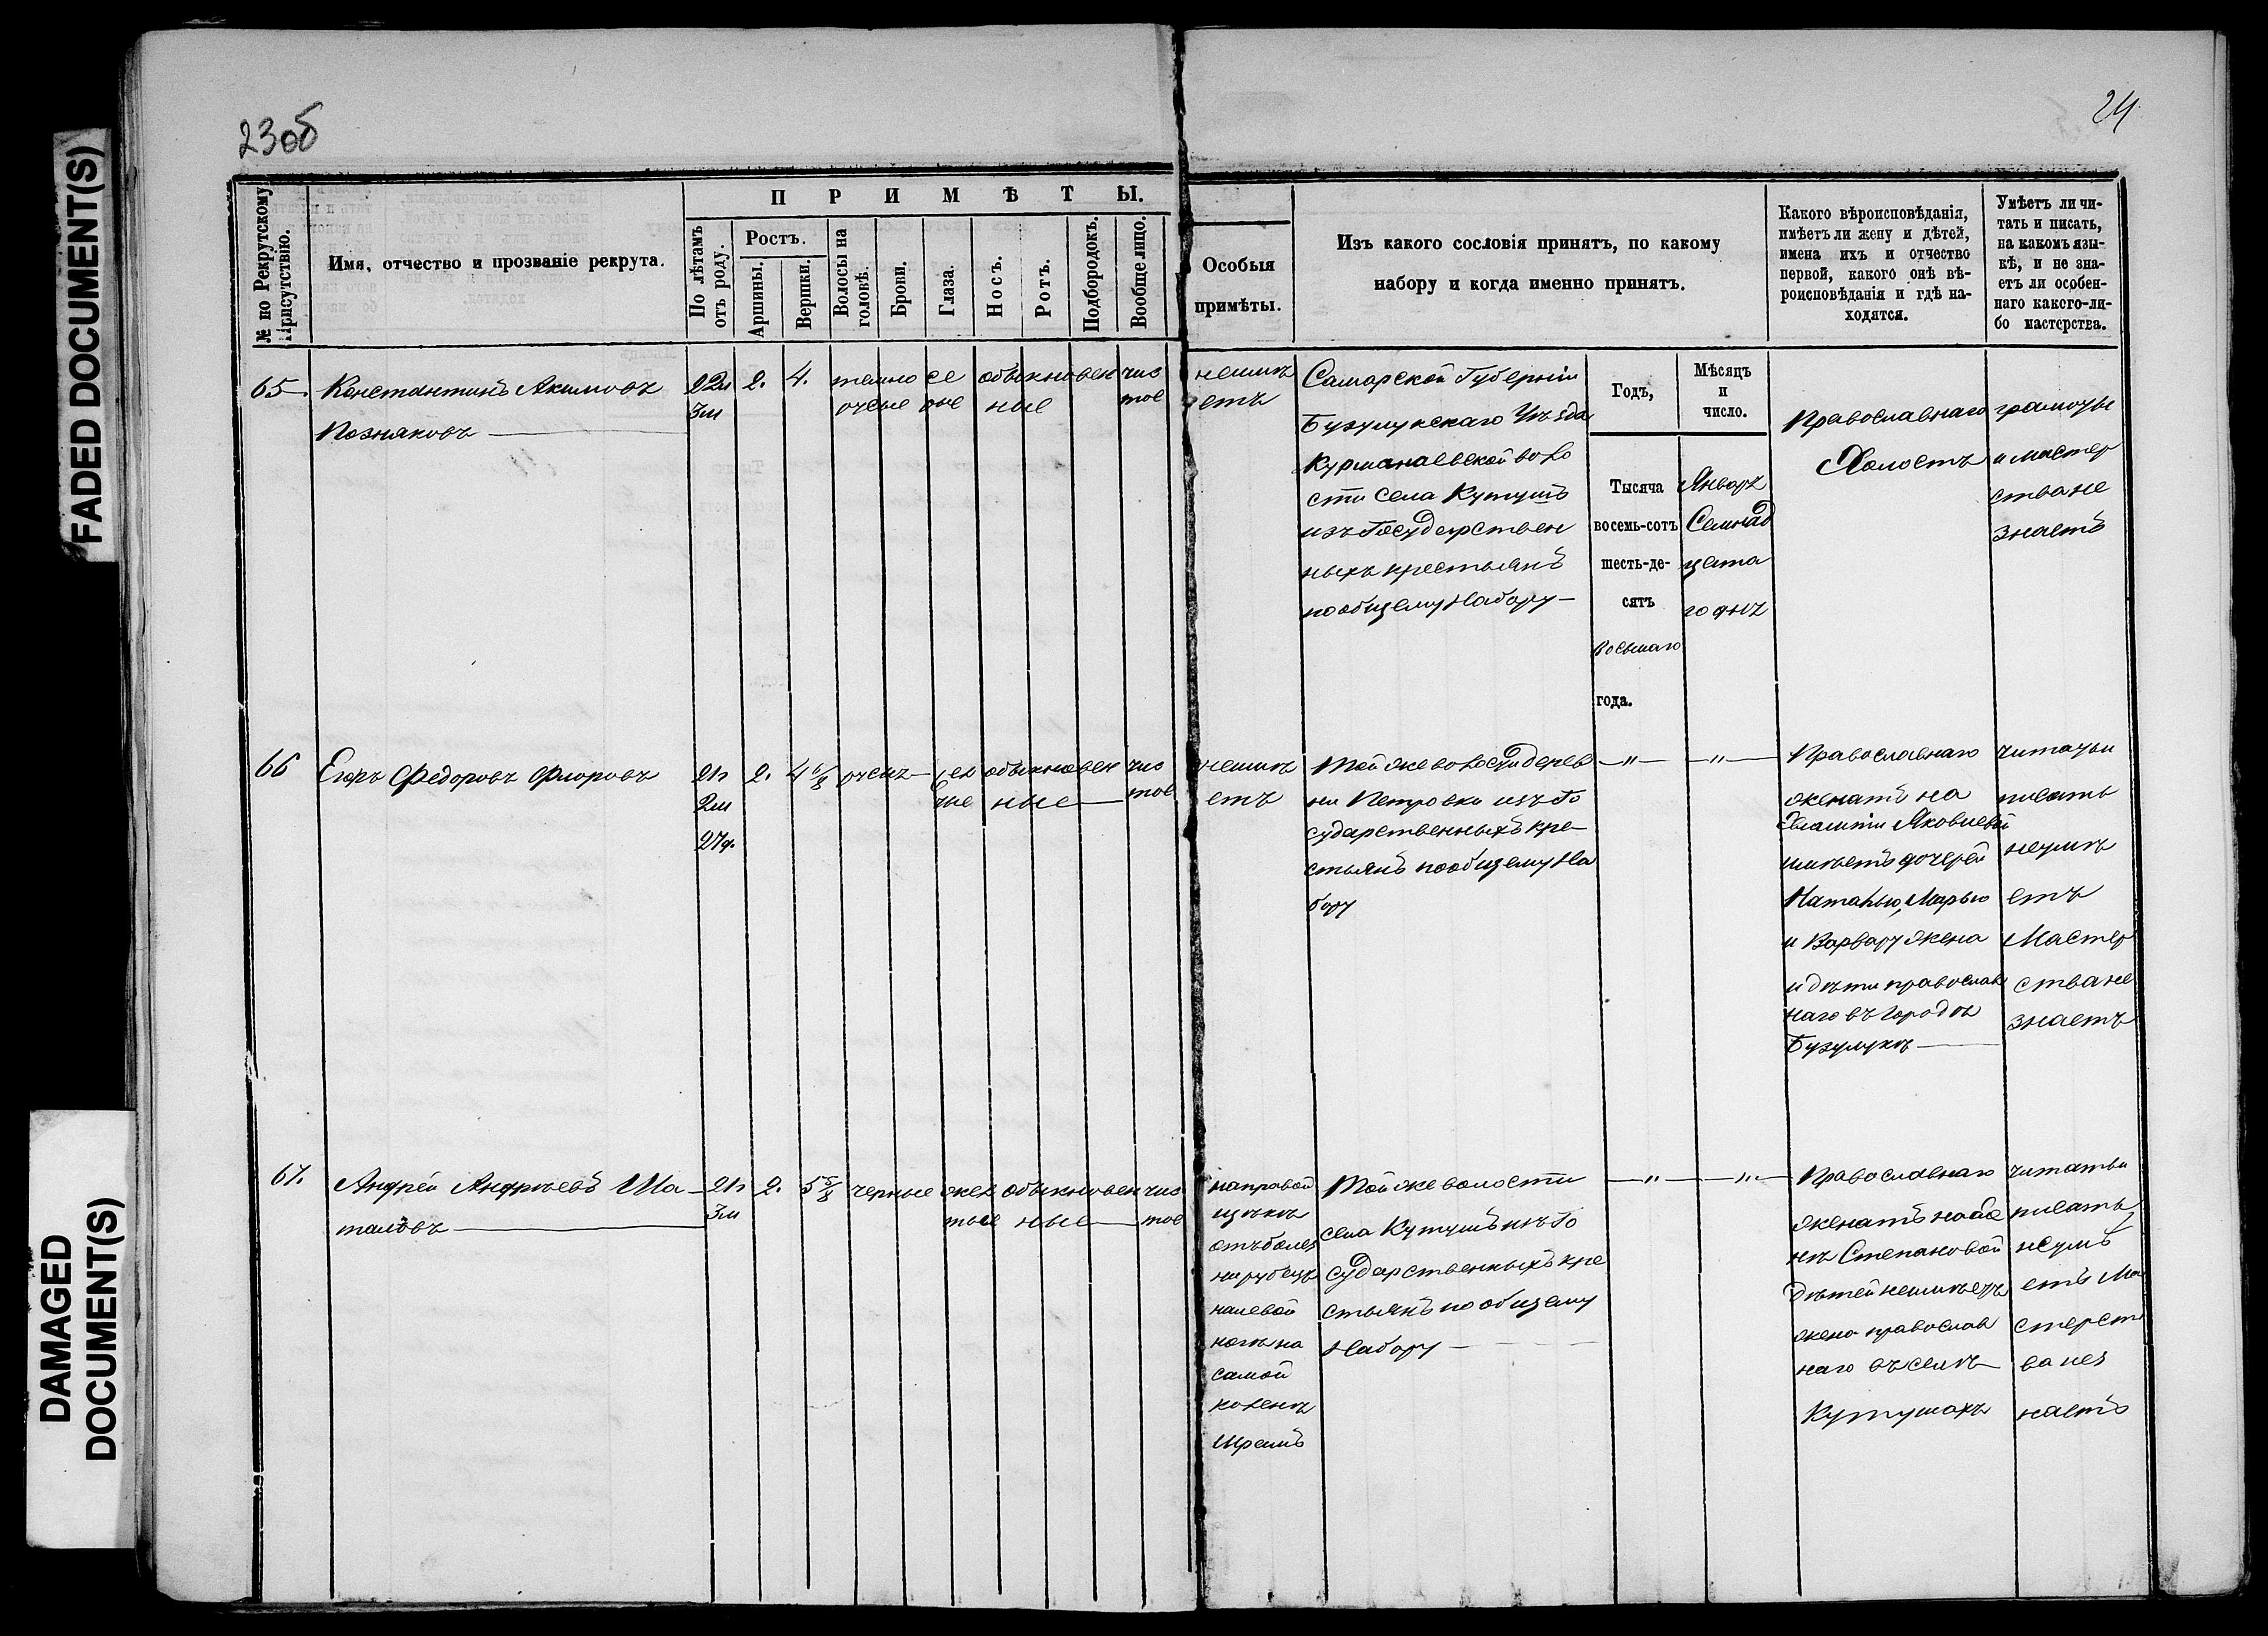 FADED DOCUMENT(S)
DAMAGED
DOCUMENT(S)
23об
24
№ по Рекрутскому
Присутствію.
Имя, отчество и прозваніе рекрута.
ПРИМѢТЫ.
По лѣтамъ
отъ роду.
Ростъ.
Аршины.
Вершки.
Волосы на
головѣ.
Брови.
Глаза.
Носъ.
Ротъ.
Подбородокъ.
Вообще лицо.
Особыя
примѣты.
Изъ какого сословія принятъ, по какому
набору и когда именно принятъ.
Какого вѣроисповѣданія,
имѣетъ ли жену и дѣтей,
имена ихъ и отчество
первой, какого онѣ вѣ-
роисповѣданія и гдѣ на-
ходятся.
Умѣетъ ли чи-
тать и писать,
на какомъ язы-
кѣ, и не зна-
етъ ли особен-
наго какого-ли-
бо мастерства.
65. Константинъ Акимовъ
Позняковъ
22л
3м
2.
4.
темно
русые
се
рые
обыкновен
ные
чис
тое
неимѣ
етъ
Самарской Губерніи
Бузулукскаго Уѣзда
Курманаевской воло
сти села Кутушъ
изъ Государствен
ныхъ крестьянъ
пообщему Набору
Годъ,
Мѣсяцъ
и
число.
Тысяча
восемь-сотъ
шесть-де-
сятъ
восьмаго
года.
Январь
Семнад
цата
го днъ
Православнаго
Холостъ
грамоты
и мастер
ства не
знаетъ
66 Егоръ Федоровъ Флоровъ
21л
2м
27д.
2.
4 6/8
обыкновен
ные
чис
тое
неимѣ
етъ
Той же волости дерев
ни Петровки изъ Го
сударственныхъ кре-
стьянъ пообщему На
бору
— " —
— " —
Православнаго
женатъ на
Яковлевой
имѣетъ дочерей
Наталью, Марью
и Варвару жена
и дѣти православ
наго въ городѣ
Бузулукѣ
читать и
писать
неумѣ
етъ
Мастер
ства не
знаетъ
67. Андрей Андреевъ Ша-
таловъ
21л
3м
2.
5 5/8
черные
жел
тые
обыкновен
ные
чис
тое
направой
щекѣ
отъ болез
ни рубецъ
налевой
ногѣ на
самой
коленѣ
шрамъ
Той же волости
села Кутушъ изъ Го
сударственныхъ кре
стьянъ по общему
Набору
— " —
— " —
Православнаго
женатъ на
Степановой
дѣтей неимѣетъ
жена православ
наго въ селѣ
Кутушахъ
читать и
писать
неумѣ
етъ Ма
стерст
ва нез
наетъ